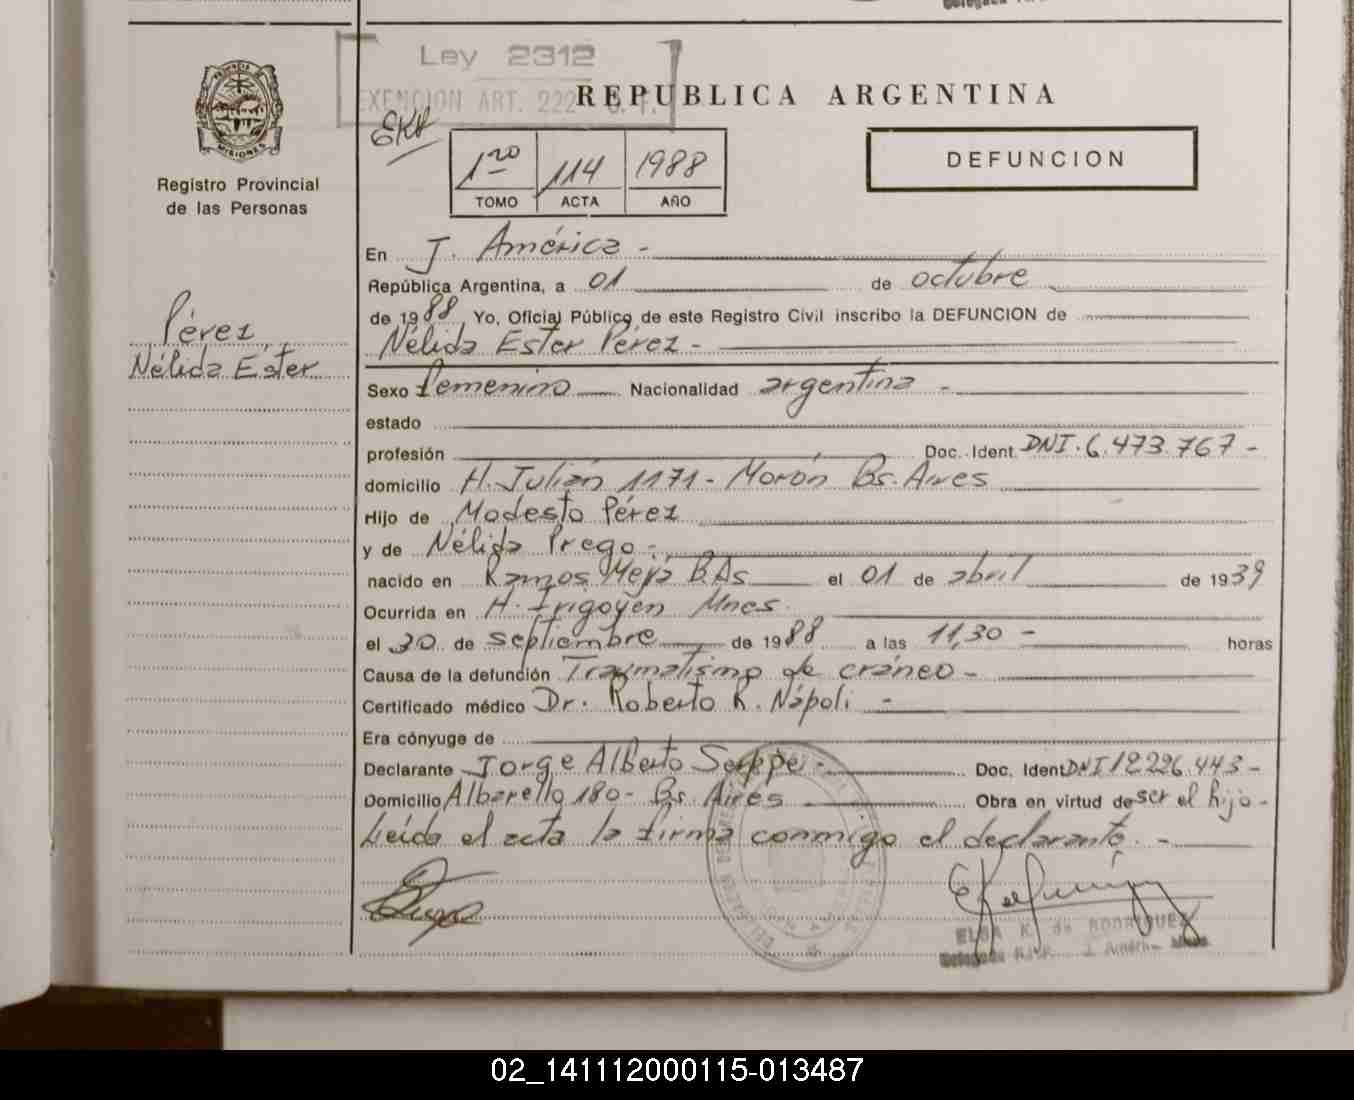 Ley 2312
EXENCION ART. 222
EKR
REPUBLICA ARGENTINA
PROVINCIA DE MISIONES
Registro Provincial
de las Personas
1ro 114 1988
TOMO ACTA AÑO
DEFUNCION
Pérez,
Nélida Ester
En J. América -
República Argentina, a 01 de octubre
de 1988 Yo, Oficial Público de este Registro Civil inscribo la DEFUNCION de
Nélida Ester Pérez -
Sexo femenino Nacionalidad argentina -
estado
profesión Doc. Ident. DNI. 6.473.767 -
domicilio H. Julián 1171 - Morón Bs. Aires
Hijo de Modesto Pérez
y de Nélida Prego -
nacido en Ramos Mejía B.As el 01 de abril de 1939
Ocurrida en H. Irigoyen Mnes.
el 30 de septiembre de 1988 a las 11,30 - horas
Causa de la defunción Traumatismo de cráneo -
Certificado médico Dr. Roberto R. Nápoli -
Era cónyuge de
Declarante Jorge Alberto - Doc. Ident. DNI 12.226.443 -
Domicilio Albarello 180 - Bs. Aires Obra en virtud de ser el hijo -
Leída el acta la firma conmigo el declarante. -
ELSA K. de RODRIGUEZ
Delegada R.P.P. J. América Mnes
02_141112000115-013487